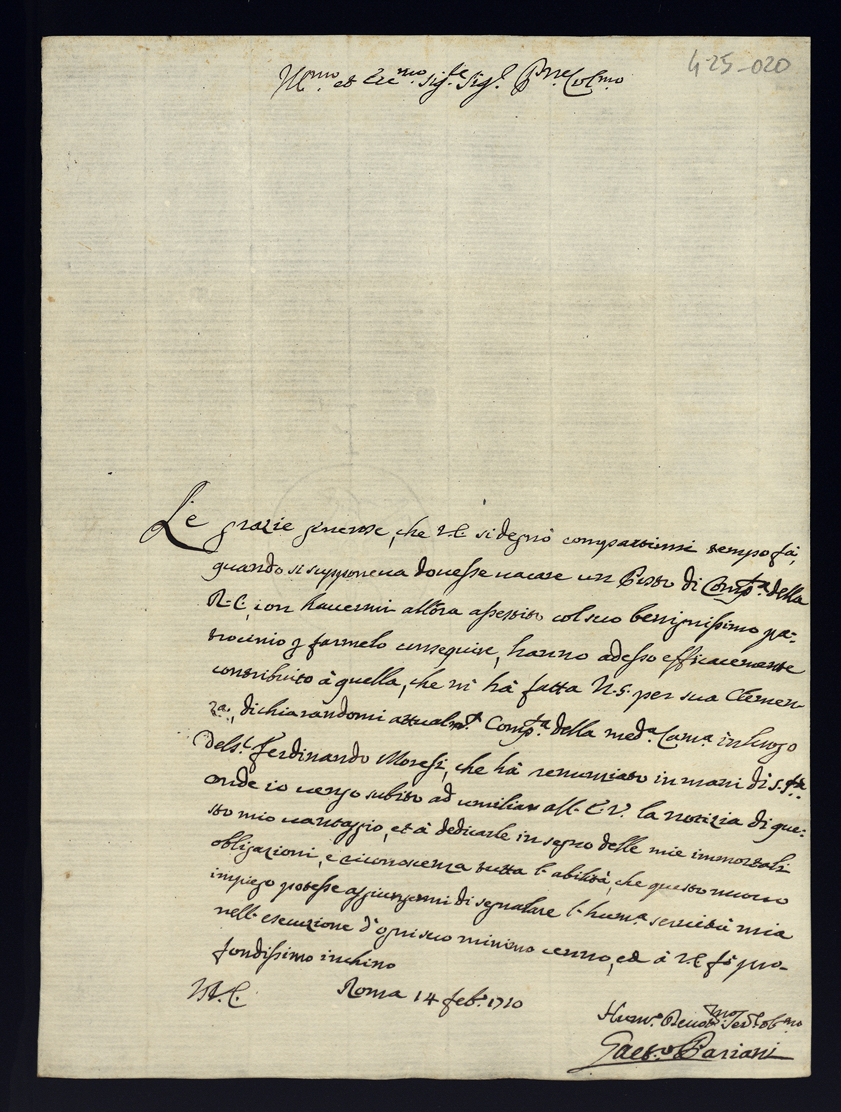 4-25-020
Ill.mo et Ecc.mo Sig.re Sig.r Pne Col.mo
Le grazie generose, che V.E. si degnò compartirmi tempo fà,
quando si supponeua douesse uacare un Posto di Comp.ta della
R.C., con hauermi allora assestito col suo benignissimo pa-
trocinio p farmelo conseguire, hanno adesso efficacemente
contribuito à quella, che mi hà fatta N.S. per sua Clemen-
za, dichiarandomi attualm.te Comp.ta della med.a Cam.a in luogo
del S.r Ferdinando Moresi, che hà renunziato in mani di S. S.tà
onde io uengo subito ad umiliare all' E.V. la notizia di que-
sto mio uantaggio, et à dedicarle in segno delle mie immortali
obligazioni, e riconoscenza tutta l' abilità, che questo nuouo
impiego potesse aggiungermi di segnalare l' hum.a seruitù mia
nell' esecuzione d' ogni suo minimo cenno, ed à V.E. fò pro-
fondissimo inchino
V.E. Roma 14 feb.o 1710
Hum.o Deuot.mo Ser.e Ob.mo
Gaet.o Pariani